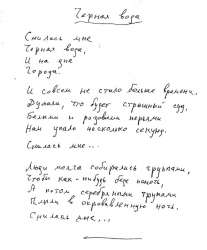 Черная вода
Снилась мне
Черная вода,
И на дне
Города.
И совсем не стало больше времени.
Думали, что будет страшный суд.
Белыми и розовыми перьями
Нам упало несколько секунд.
Снилась мне...
Люди молча собирались группами,
Чтобы как-нибудь беде помочь,
А потом серебряными трупами
Плыли в окровавленную ночь.
Снилась мне...